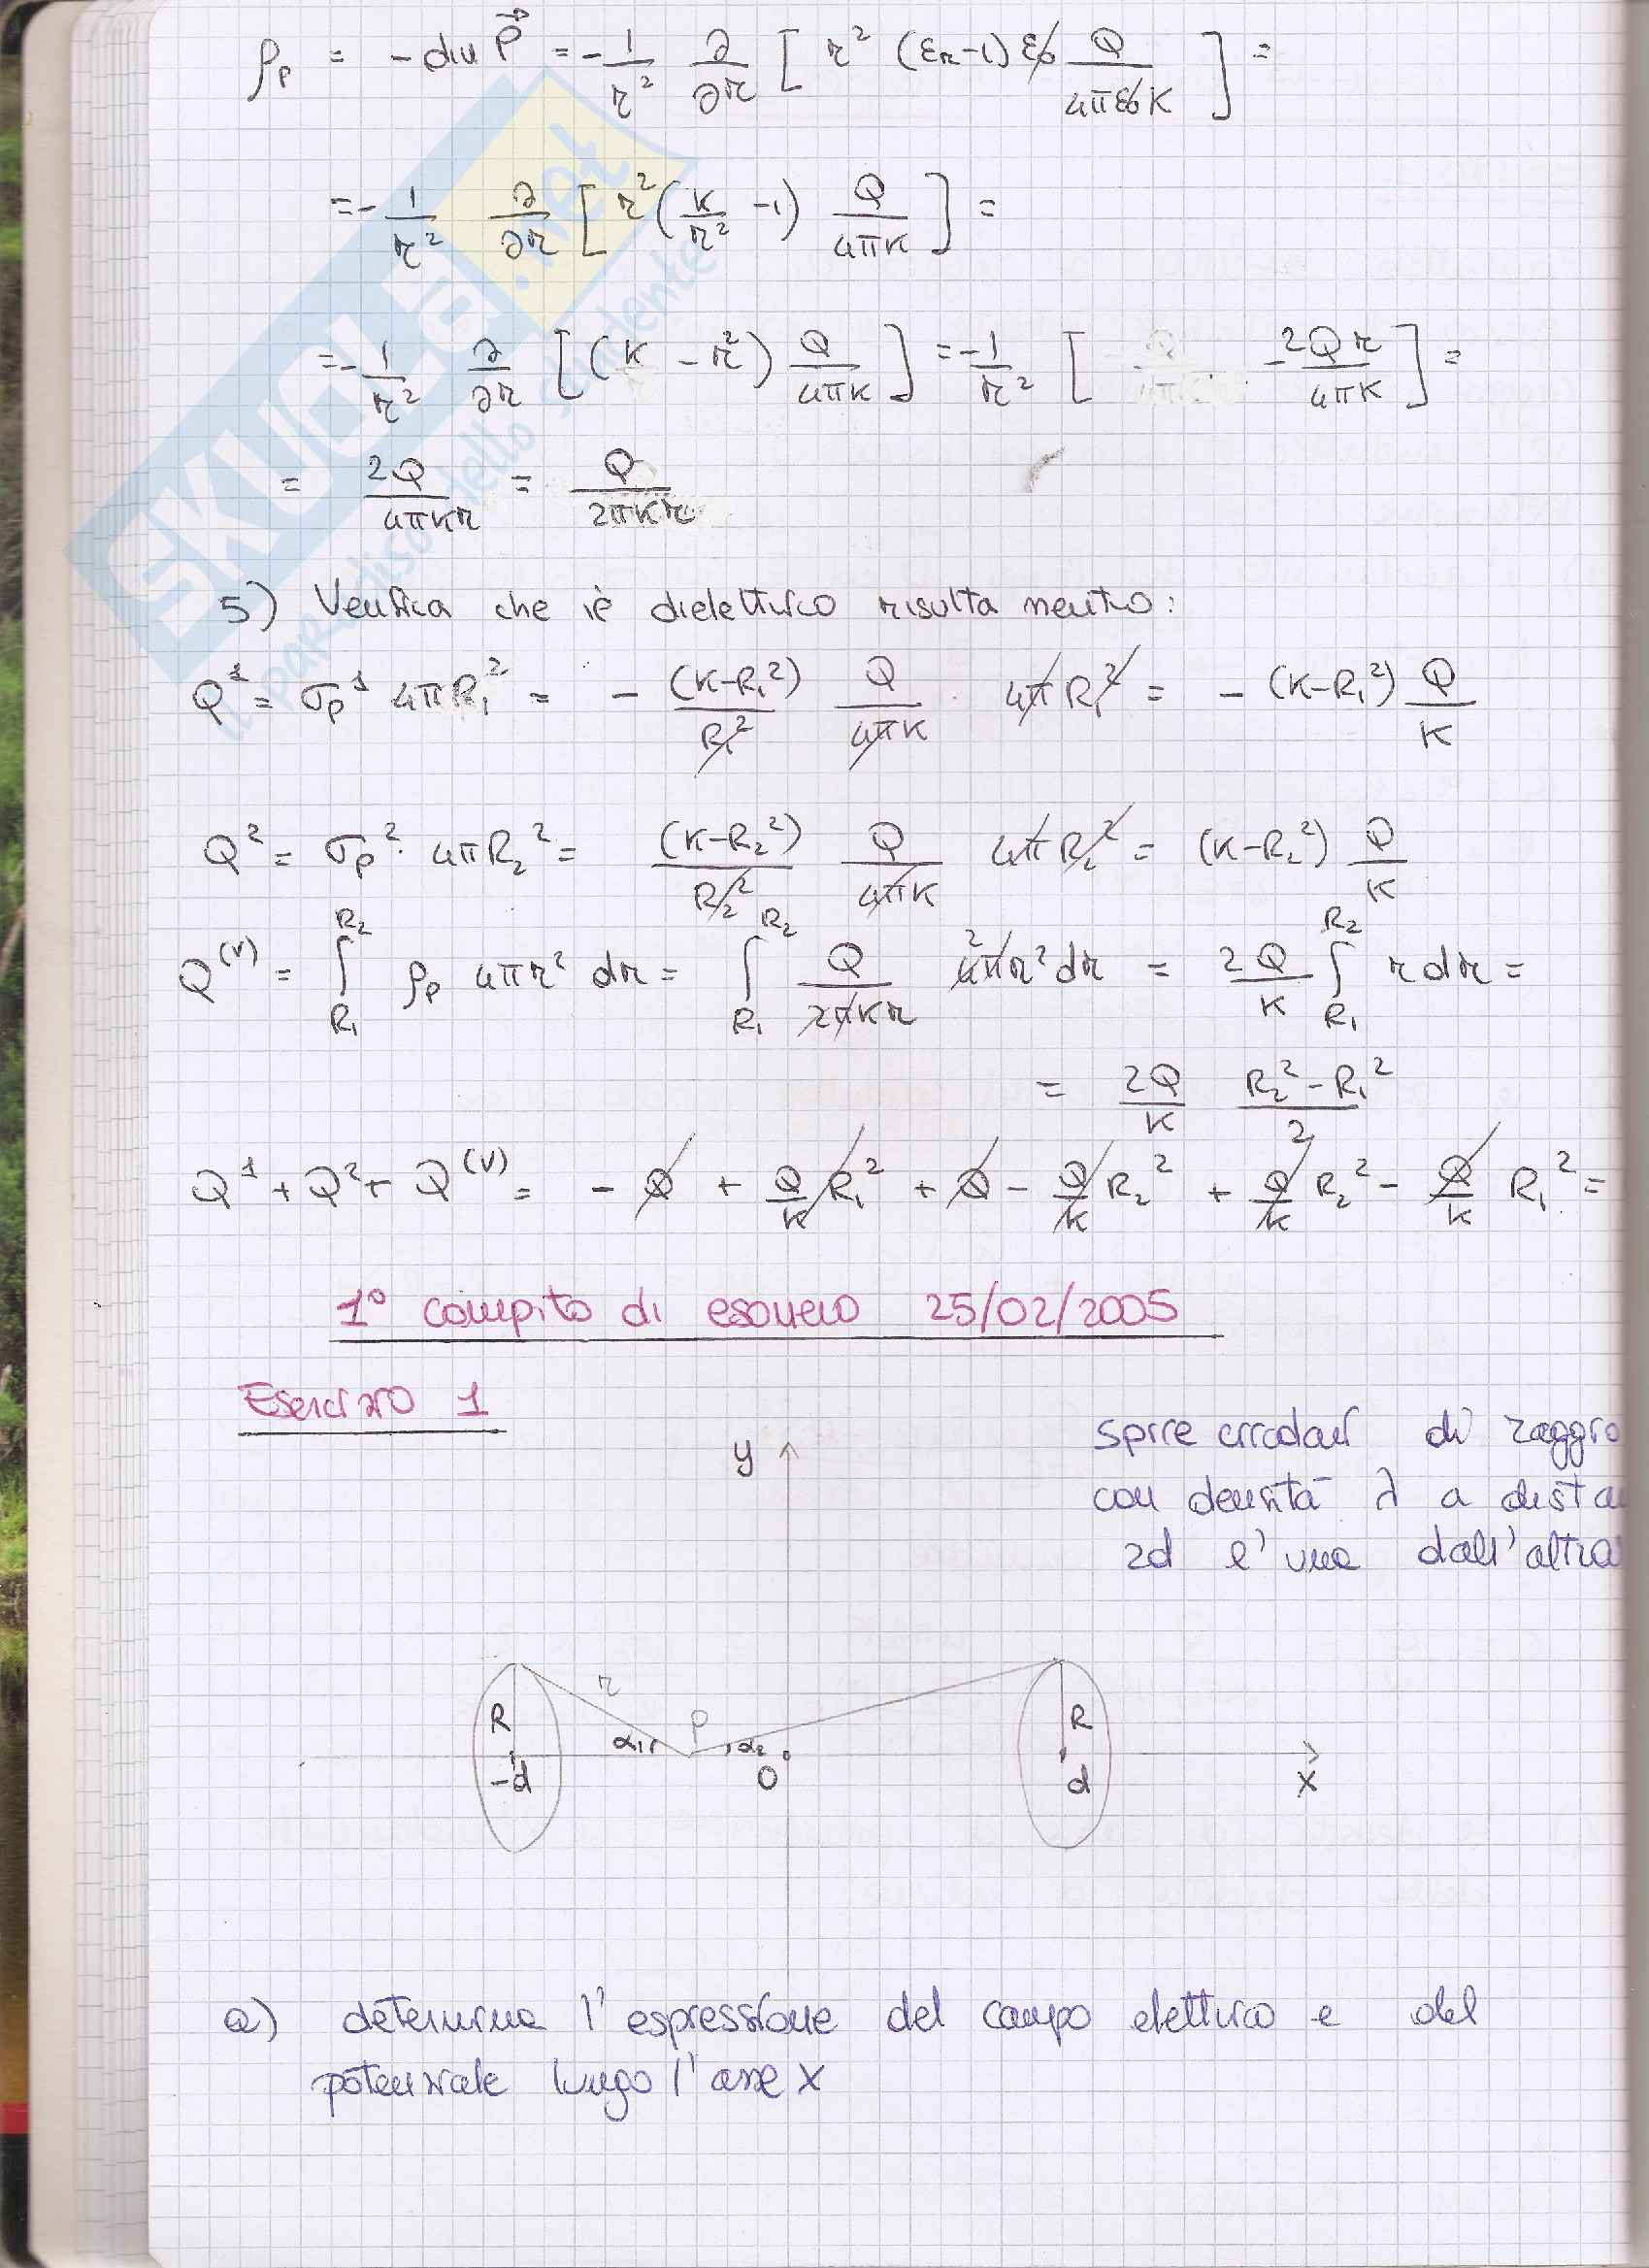 ρp = - div P⃗ = - 1/r² ∂/∂r [ r² (εr-1) ε0 Q/4πε0K ] =
= - 1/r² ∂/∂r [ r² (K/r² -1) Q/4πK ] =
= - 1/r² ∂/∂r [ (K - r²) Q/4πK ] = - 1/r² [ - 2Qr/4πK ] =
= 2Q/4πKr = Q/2πKr
5) Verifica che il dielettrico risulta neutro:
Q¹ = σp¹ 4πR₁² = - (K-R₁²)/R₁² Q/4πK · 4πR₁² = - (K-R₁²) Q/K
Q² = σp² · 4πR₂² = (K-R₂²)/R₂² Q/4πK 4πR₂² = (K-R₂²) Q/K
Q⁽ⱽ⁾ = ∫R₁R₂ ρp 4πr² dr = ∫R₁R₂ Q/2πKr 4πr² dr = 2Q/K ∫R₁R₂ r dr =
= 2Q/K R₂²-R₁²/2
Q¹ + Q² + Q⁽ⱽ⁾ = - Q + Q/K R₁² + Q - Q/K R₂² + Q/K R₂² - Q/K R₁² =
1° compito di esonero 25/02/2005
Esercizio 1
spire circolari di raggio
con densità λ a dista
2d l'una dall'altra
y
r
R
P
R
α₁
α₂
-d
O
d
x
a) determina l'espressione del campo elettrico e del
potenziale lungo l'asse x
SKUOLA.net
il paradiso dello studente